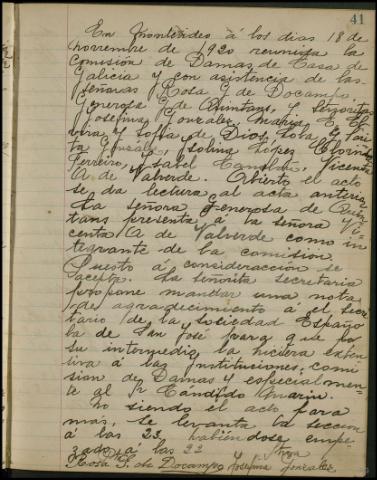 41
En Montevideo á los dias 18 de
noviembre de 1920 reunida la
comisión de Damas de Casa de
Galicia y con asistencia de las
señoras Rosa G de Docampo,
Generosa G de Quintans, y Señoritas
Josefina Gonzalez, Maria E El
vira y Sofia de Dios, Lola
Gonzalez, Jolina López,
Ferreiro, Isabel Vicenta
A de Valverde. Abierto el acto
se da lectura al acta anterior
La señora Generosa de Quin
tans presenta á la señora Vi
centa A de Valverde como in
tegrante de la comisión.
Puesto á consideracción se
acepta. La señorita secretaria
propone mandar una nota
de agradecimiento á el secre
tario de la Sociedad Españo
la de San José para que por
su intermedio la hiciera exten
tiva á las Instituciones, comi
sion de Damas y especialmen
te al Sr Candido Marin.
No siendo el acto para
más, se levanta la seccion
á las 23 habien dose empe
zado á las 22
Rosa G. de Docampo Josefina Gonzalez